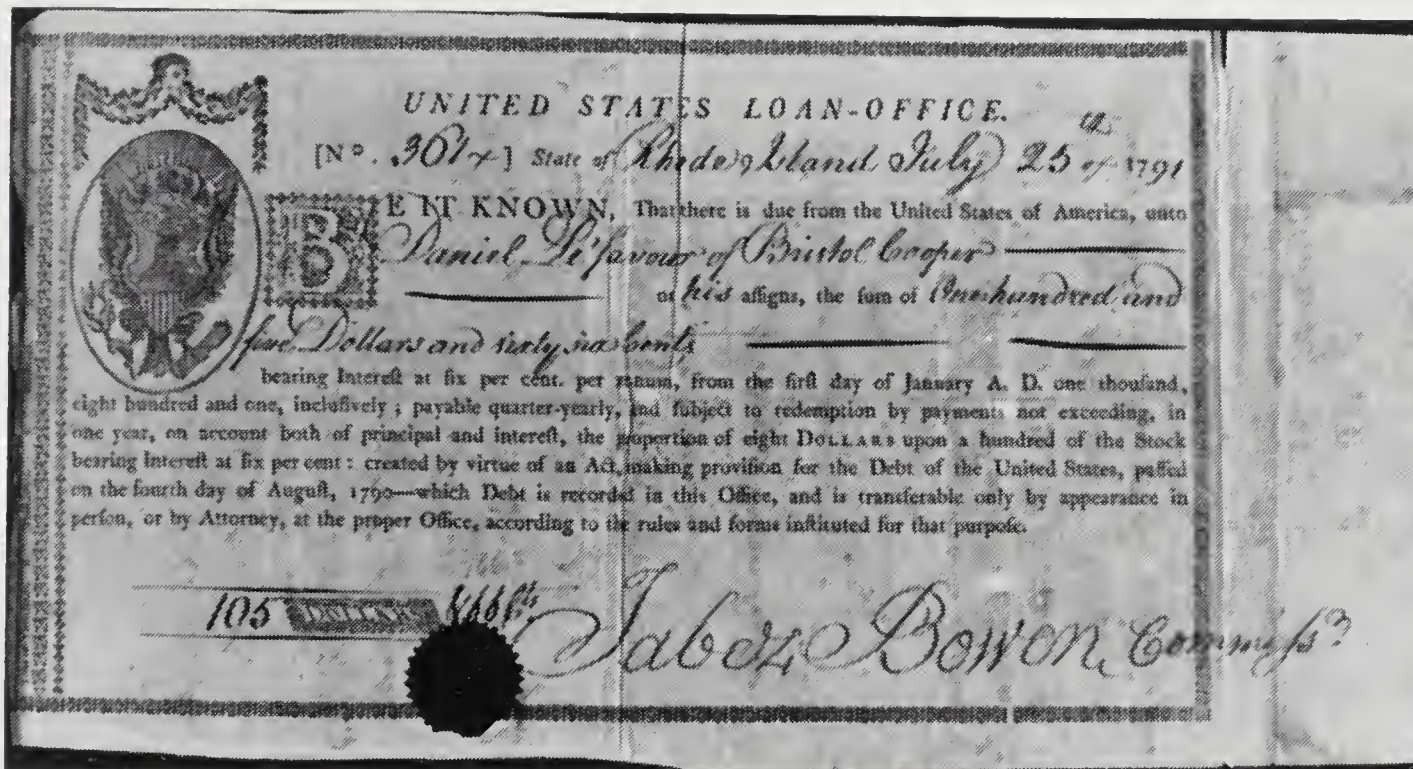 UNITED STATES LOAN-OFFICE.
[Nº. 3614] State of Rhode Island July 25th 1791
BE IT KNOWN, That there is due from the United States of America, unto
Daniel Lefavour of Bristol Cooper
or his aſſigns, the ſum of One hundred and
five Dollars and sixty six Cents
bearing Intereſt at ſix per cent. per annum, from the firſt day of January A. D. one thouſand,
eight hundred and one, incluſively; payable quarter-yearly, and ſubject to redemption by payments not exceeding, in
one year, on account both of principal and intereſt, the proportion of eight DOLLARS upon a hundred of the Stock
bearing Intereſt at ſix per cent: created by virtue of an Act, making proviſion for the Debt of the United States, paſſed
on the fourth day of Auguſt, 1790—which Debt is recorded in this Office, and is transferable only by appearance in
perſon, or by Attorney, at the proper Office, according to the rules and forms inſtituted for that purpoſe.
105 DOLLARS &66Cts
Jabez Bowen, Commyssr